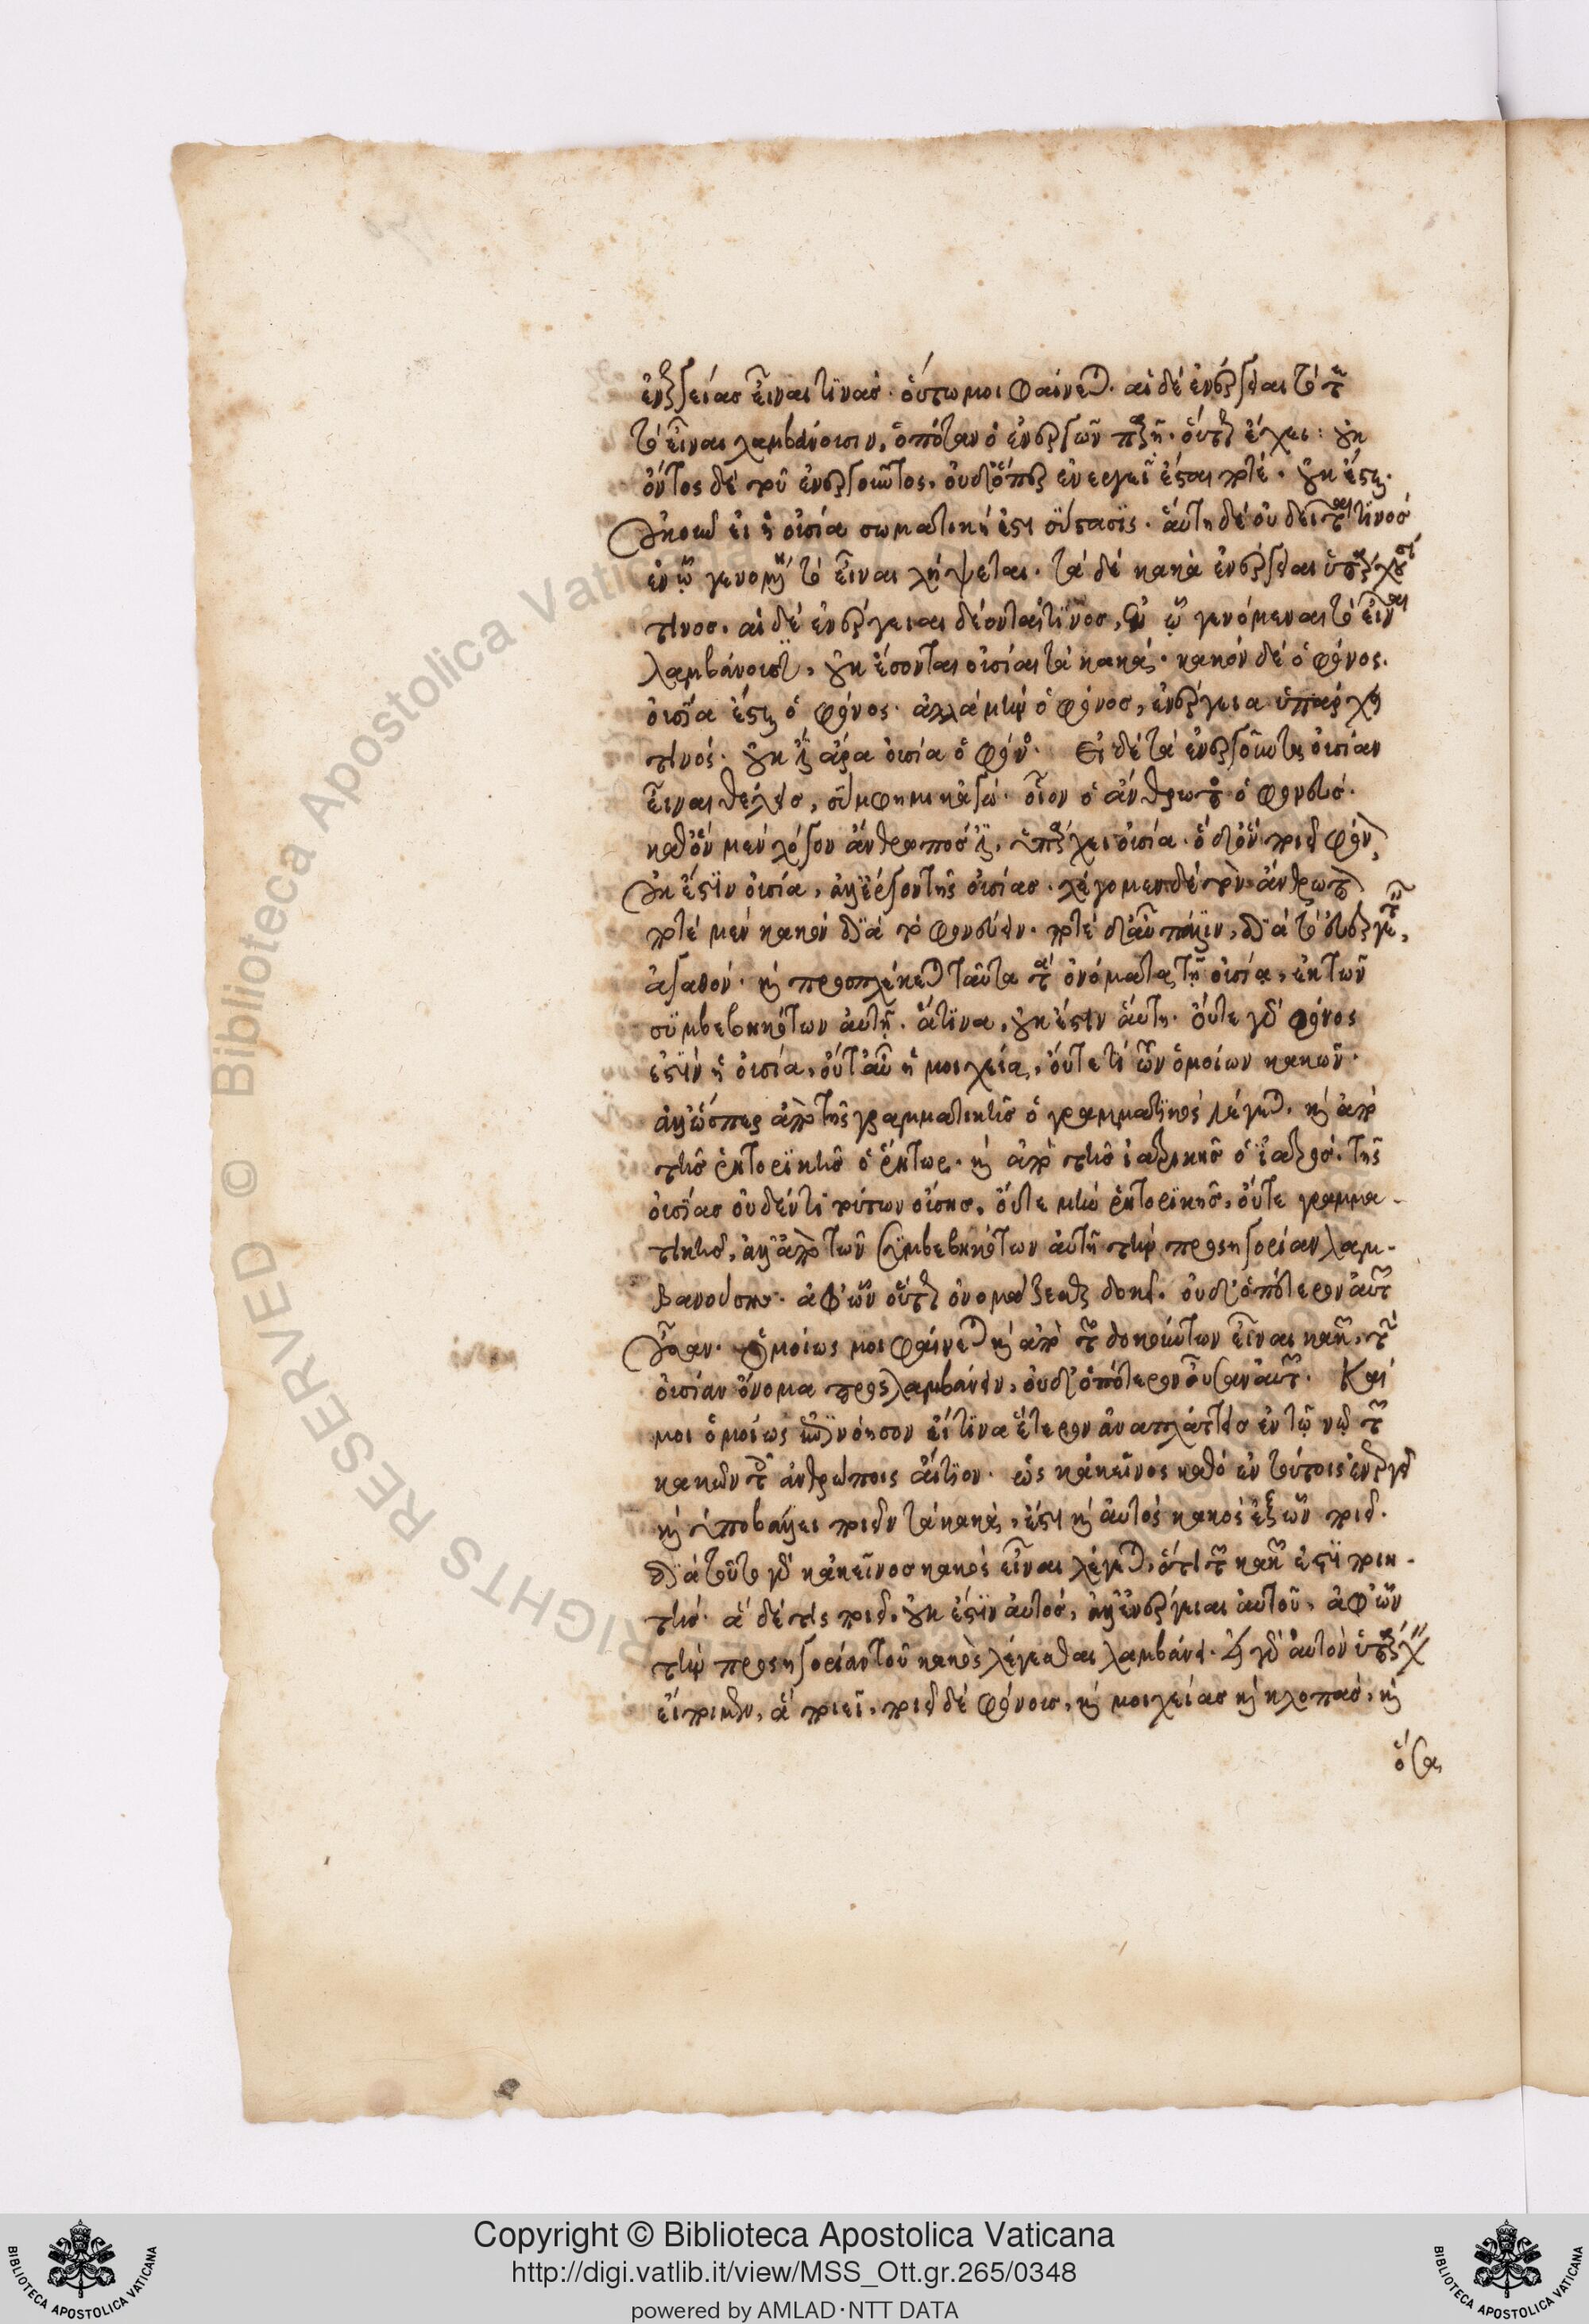 ἐνεργείας εἶναι τινὰς. οὕτω μοι φαίνεται. αἱ δὲ ἐνέργειαι τότε
τὸ εἶναι λαμβάνουσιν, ὁπόταν ὁ ἐνεργῶν παρῇ. οὕτως ἔχει: οὐκ
ὄντος δὲ τοῦ ἐνεργοῦντος, οὐδ' ὅπερ ἐνεργεῖ ἔσται ποτέ. οὐκ ἔσται.
Οὐκοῦν εἰ ἡ οὐσία σωματική ἐστι σύστασις. αὕτη δὲ οὐ δεῖται τινὸς
ἐν ᾧ γενομένη τὸ εἶναι λήψεται. τὰ δὲ κακὰ ἐνέργειαι ὑπάρχουσί
τινος. αἱ δὲ ἐνέργειαι δέονται τινὸς, ἐν ᾧ γενόμεναι τὸ εἶναι
λαμβάνουσιν, οὐκ ἔσονται οὐσίαι τὰ κακά. κακὸν δὲ ὁ φόνος.
οὐσία ἔσται ὁ φόνος. ἀλλὰ μὴν ὁ φόνος, ἐνέργεια ὑπάρχει
τινός. οὐκ ἔστιν ἄρα οὐσία ὁ φόνος. Εἰ δὲ τὰ ἐνεργοῦντα οὐσίαν
εἶναι θέλεις, σύμφημι κἀγώ. οἷον ὁ ἄνθρωπος ὁ φονεὺς.
καθ' ὃν μὲν λόγον ἄνθρωπός ἐστιν, ὑπάρχει οὐσία. ὁ δὲ ὃν ποιεῖ φόνον,
οὐκ ἔστιν οὐσία, ἀλλ' ἔργον τῆς οὐσίας. λέγομεν δὲ τὸν ἄνθρωπον
ποτὲ μὲν κακὸν διὰ τὸ φονεύειν. ποτὲ δ' αὖ πάλιν, διὰ τὸ εὐεργετεῖν,
ἀγαθόν. καὶ προσπλέκεται ταῦτα τὰ ὀνόματα τῇ οὐσίᾳ, ἐκ τῶν
συμβεβηκότων αὐτῇ. ἅτινα, οὐκ ἔστιν αὕτη. οὔτε γὰρ φόνος
ἐστὶν ἡ οὐσία, οὔτ' αὖ ἡ μοιχεία, οὔτε τι τῶν ὁμοίων κακῶν.
ἀλλ' ὥσπερ ἀπὸ τῆς γραμματικῆς ὁ γραμματικὸς λέγεται, καὶ ἀπὸ
τῆς ῥητορικῆς ὁ ῥήτωρ. καὶ ἀπὸ τῆς ἰατρικῆς ὁ ἰατρός. τῆς
οὐσίας οὐδέν τι τούτων οὔσης, οὔτε μὴν ῥητορικῆς, οὔτε γραμμα-
τικῆς, ἀλλ' ἀπὸ τῶν συμβεβηκότων αὐτῇ τὴν προσηγορίαν λαμ-
βανούσης. ἀφ' ὧν οὕτως ὀνομάζεσθαι δοκεῖ. οὐδ' ὁπότερον αὐτῶν
οὖσαν. ὁμοίως μοι φαίνεται καὶ ἀπὸ τῶν δοκούντων εἶναι κακῶν, τὴν
οὐσίαν ὄνομα προσλαμβάνειν, οὐδ' ὁπότερον οὖσαν αὐτῶν. Καί
μοι ὁμοίως ἐπινόησον εἴ τινα ἕτερον ἀναπλάττεις ἐν τῷ νῷ τῶν
κακῶν τοῖς ἀνθρώποις αἴτιον. ὡς κἀκεῖνος καθὸ ἐν τούτοις ἐνεργεῖ
καὶ ὑποβάλλει ποιεῖν τὰ κακά, ἔστι καὶ αὐτὸς κακὸς ἐξ ὧν ποιεῖ.
διὰ τοῦτο γὰρ κἀκεῖνος κακὸς εἶναι λέγεται, ὅτι τῶν κακῶν ἐστι ποιη-
τής. ἃ δέ τις ποιεῖ, οὐκ ἔστιν αὐτὸς, ἀλλ' ἐνέργειαι αὐτοῦ, ἀφ' ὧν
τὴν προσηγορίαν τοῦ κακὸς λέγεσθαι λαμβάνει. εἰ γὰρ αὐτὸν ὑπάρχειν
εἴποιμεν, ἃ ποιεῖ, ποιεῖ δὲ φόνους, καὶ μοιχείας καὶ κλοπὰς, καὶ
ὅσα